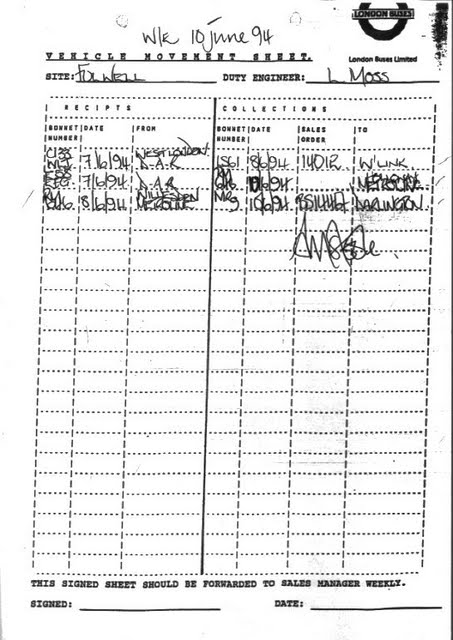 W/E 10 June 94
LONDON BUSES
VEHICLE MOVEMENT SHEET.
London Buses Limited
SITE: FULWELL DUTY ENGINEER: L MOSS
RECIPTS COLLECTIONS
BONNET NUMBER DATE FROM BONNET NUMBER DATE SALES ORDER TO
WEST LONDON
7/6/94 D.A.R LS61 8/6/94 1401R W'LINK
7/6/94 D.A.R 646 /6/94 METROLINE
WILLESDEN
646 8/6/94 METROLINE 9 10/6/94 DARLINGTON
THIS SIGNED SHEET SHOULD BE FORWARDED TO SALES MANAGER WEEKLY.
SIGNED: DATE: